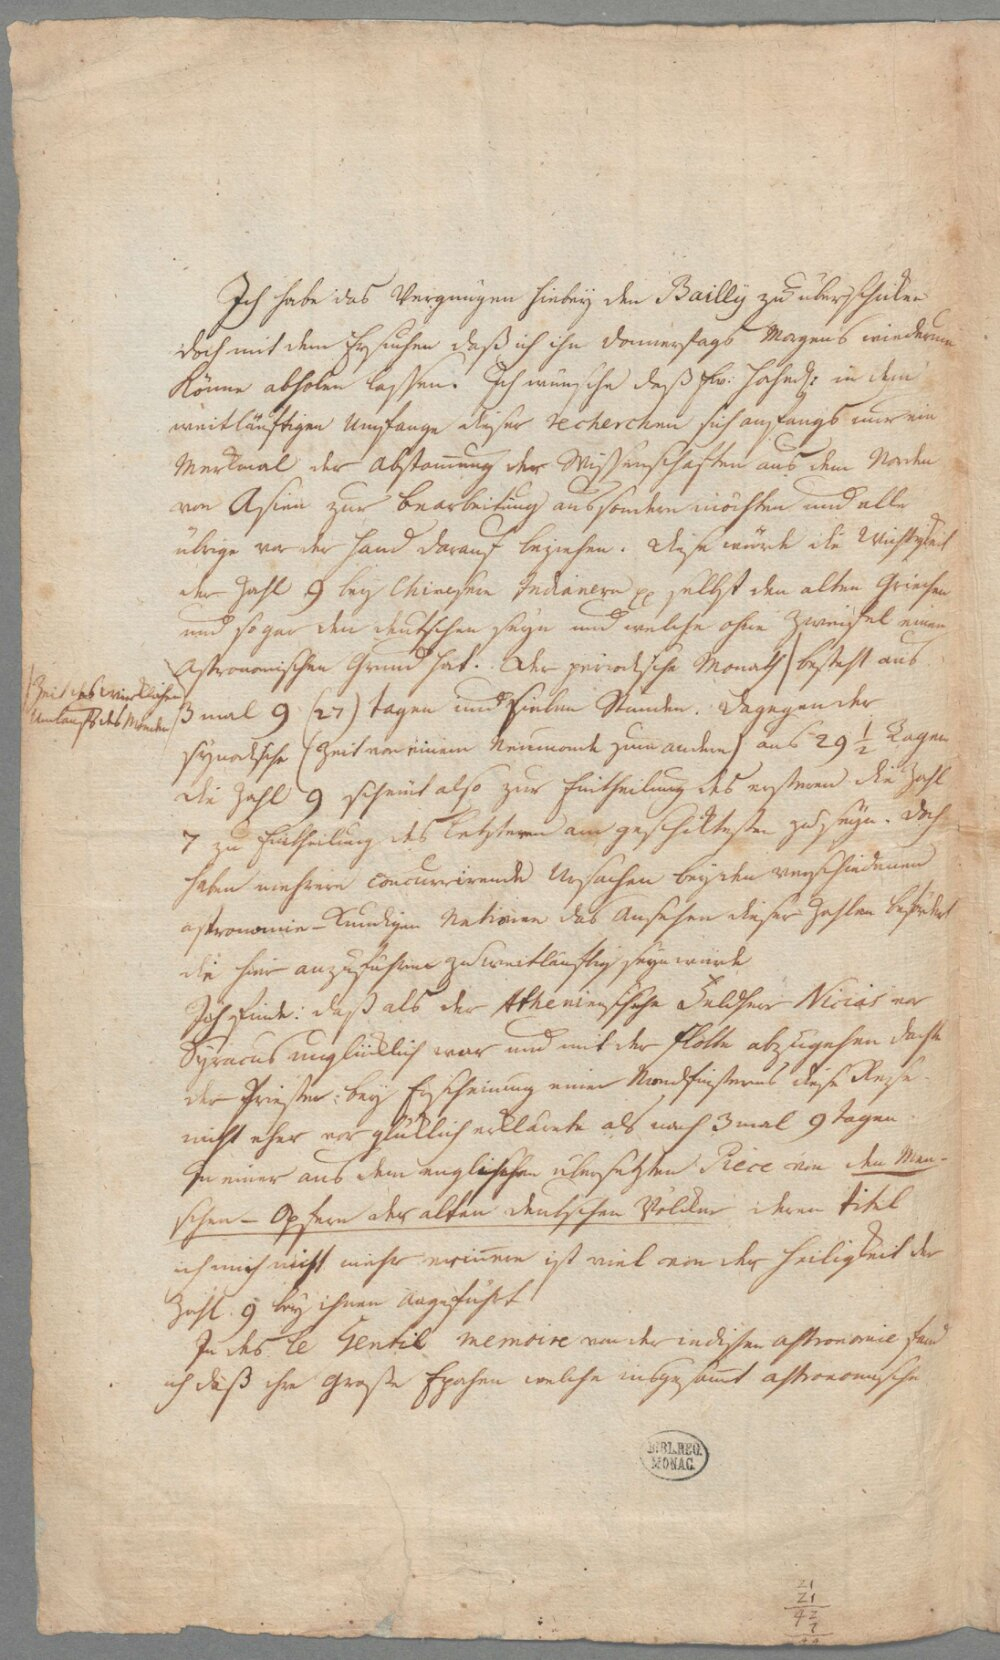 Ich habe das Vergnügen hiebey den Bailly zu überschicken
doch mit dem Ersuchen daß ich ihn Donnerstags Morgens wiederum
könne abholen lassen. Ich wünsche daß Ew: Hochedl: in dem
weitläuftigen Umfange dieser recherchen sich anfangs nur ein
Merkmal der Abstam̅ung der Wissenschaften aus dem Norden
von Asien zur Bearbeitung aussondern möchten und alle
übrige vor der Hand darauf beziehen. Diese würde die Wichtigkeit
der Zahl 9 bey Chinesern Indianern selbst den alten Griechen
und sogar den deutschen seyn und welche ohne Zweifel einen
Astronomischen Grund hat. Der periodische Monath) besteht aus
(Zeit des wirklichen
Umlaufs des Monden)
3 mal 9 (27) tagen und sieben Stunden. Dagegen der
synodische (Zeit von einem Neumonde zum andern) aus 29 1/2 Tagen
Die Zahl 9 scheint also zur Eintheilung des ersteren die Zahl
7 zu Eintheilung des letzteren am geschiktesten zu seyn. Doch
haben mehrere concurrirende Ursachen bey den verschiedenen
astronomie-Kundigen Nationen das Ansehen dieser Zahlen befördert
die hier anzuführen zu weitläuftig seyn würde
Ich finde: daß als der Atheniensische Feldherr Nicias vor
Syracus unglücklich war und mit der Flotte abzugehen dachte
der Priester: bey Erscheinung einer Mondfinsternis diese Reise
nicht eher vor glüklich erklärete als nach 3 mal 9 tagen.
In einer aus dem englischen übersetzten Piece von den Men-
schen-Opfern der alten deutschen Völker deren titel
ich mich nicht mehr erin̅ere ist viel von der Heiligkeit der
Zahl 9 bey ihnen angeführt
In des le Gentil memoire von der indischen astronomie fand
ich daß ihre große Epochen welche insgesam̅t astronomische
BIBL.REG.
MONAC.
21
21
42
7